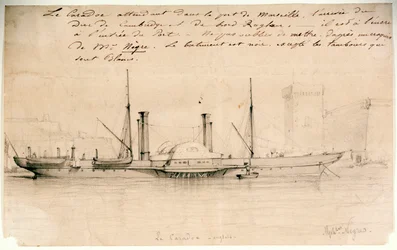 Le Caradoc attendant dans le port de Marseille, l'arrivée du
Duc de Cambridge, & de Lord Raglan; il est à l'ancre
à l'entrée du Port. Ne pas oublier de mettre, d'après un croquis
de Mr. Nègre. Le bâtiment est noir, excepté les tambours qui
sont blancs.
Le Caradoc
Nègre